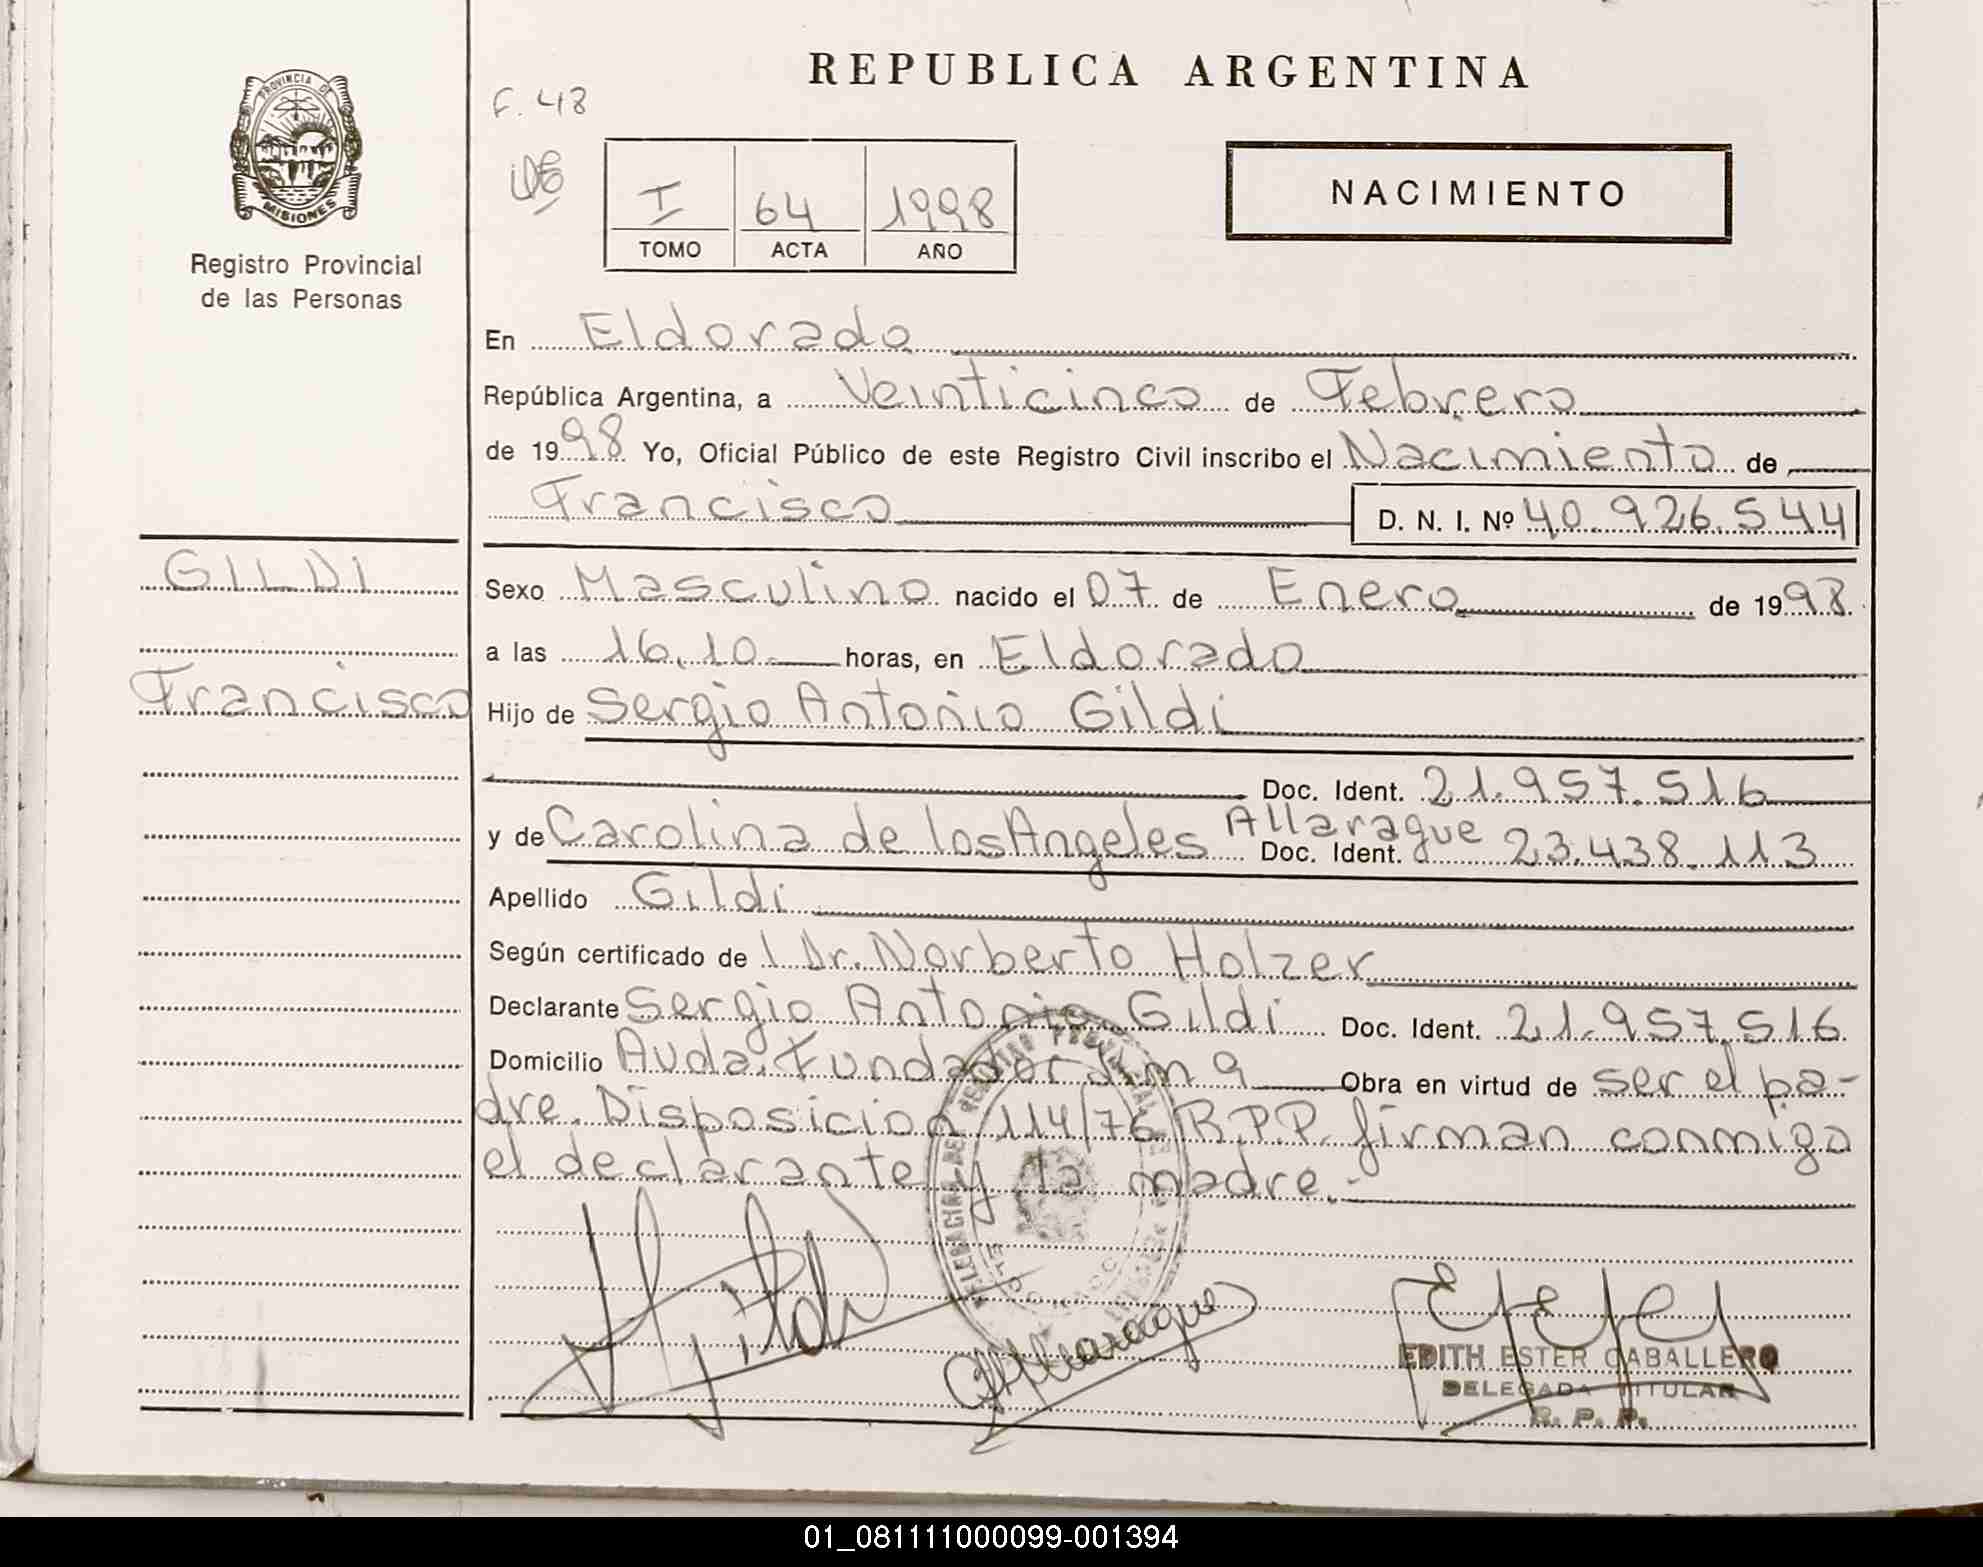 REPUBLICA ARGENTINA
PROVINCIA DE
MISIONES
Registro Provincial
de las Personas
F. 48
I 64 1998
TOMO ACTA AÑO
NACIMIENTO
En Eldorado
República Argentina, a Veinticinco de Febrero
de 1998 Yo, Oficial Público de este Registro Civil inscribo el Nacimiento de
Francisco D. N. I. Nº 40.926.544
GILDI
Francisco
Sexo Masculino nacido el 07 de Enero de 1998.
a las 16.10 horas, en Eldorado
Hijo de Sergio Antonio Gildi
Doc. Ident. 21.957.516
y de Carolina de los Angeles Allarague Doc. Ident. 23.438.113
Apellido Gildi
Según certificado de l Dr. Norberto Holzer
Declarante Sergio Antonio Gildi Doc. Ident. 21.957.516
Domicilio Avda. Fundador km 9 Obra en virtud de ser el pa-
dre. Disposicion 114/76 R.P.P. firman conmigo
el declarante y la madre.-
EDITH ESTER CABALLERO
DELEGADA TITULAR
R. P. P.
01_081111000099-001394